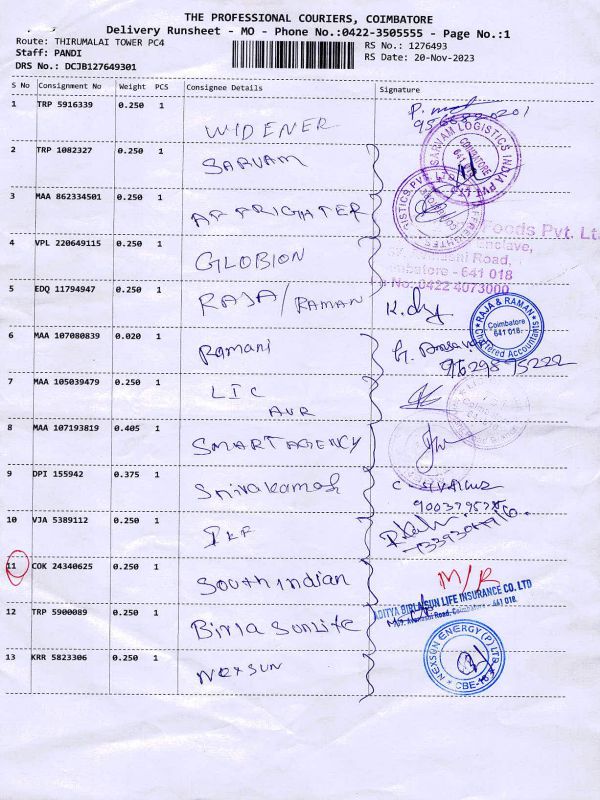 THE PROFESSIONAL COURIERS, COIMBATORE
Delivery Runsheet - MO - Phone No.:0422-3505555 - Page No.:1
Route: THIRUMALAI TOWER PC4
RS No.: 1276493
Staff: PANDI
RS Date: 20-Nov-2023
DRS No.: DCJB127649301
S No Consignment No Weight PCS Consignee Details Signature
1 TRP 5916339 0.250 1
WIDENER
2 TRP 1082327 0.250 1
SARVAM
SARVAM LOGISTICS INDIA PVT
COIMBATORE
3 MAA 862334501 0.250 1
AFFRIGHTER
4 VPL 220649115 0.250 1
GLOBION
Foods Pvt. Lt
Enclave,
Road,
- 641 018
No: 0422 4073000
5 EDQ 11794947 0.250 1
RAJA/RAMAN
RAJA & RAMAN
Coimbatore
641 018.
Chartered Accountants
6 MAA 107080839 0.020 1
Ramani
9629895222
7 MAA 105039479 0.250 1
LIC
AUR
8 MAA 107193819 0.405 1
SMART AGENCY
9 DPI 155942 0.375 1
Srivakamah
10 VJA 5389112 0.250 1
11 COK 24340625 0.250 1
South indian
M/R
12 TRP 5900089 0.250 1
Birla SunLife
ADITYA BIRLA SUN LIFE INSURANCE CO. LTD
641 018.
13 KRR 5823306 0.250 1
NEXSUN
NEXSUN ENERGY (P) LTD
CBE-18